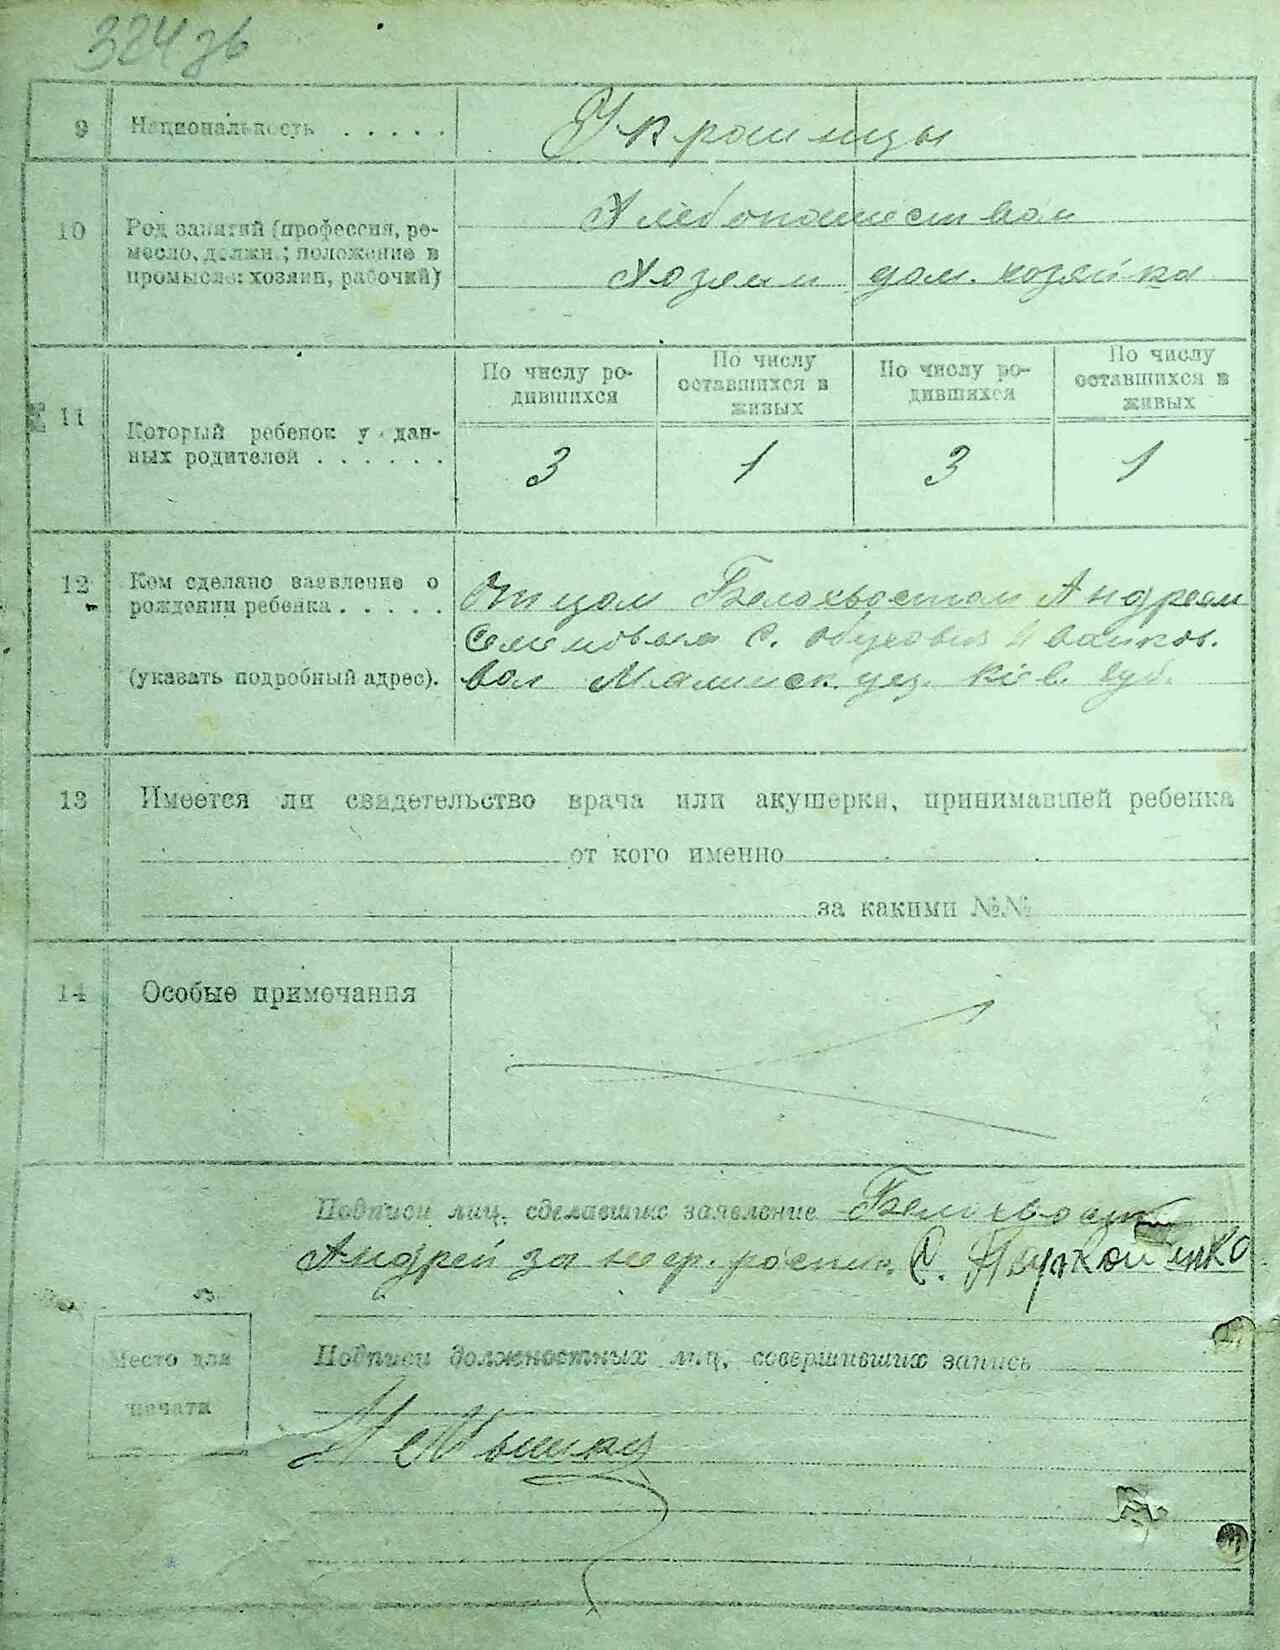 324 зв
9 Национальность . . . . . Украинцы
10 Род занятий (профессия, ре-
месло, должн.; положение в
промысле: хозяин, рабочий)
Хлебопашеством
Хозяин дом. хозяйка
11 Который ребенок у дан-
ных родителей . . . . . .
По числу ро-
дившихся
По числу
оставшихся в
живых
По числу ро-
дившихся
По числу
оставшихся в
живых
3 1 3 1
12 Кем сделано заявление о
рождении ребенка . . . . .
(указать подробный адрес).
Отцом Белохвостом Андреем
Семеновым С. Обуховичи Иванков.
вол Малинск. уез. Кіев. губ.
13 Имеется ли свидетельство врача или акушерки, принимавшей ребенка
от кого именно
за какими №№
14 Особые примечания
Подписи лиц, сделавших заявление Белохвост
Андрей за негр. роспис. С.
Место для
печати
Подписи должностных лиц, совершивших запись